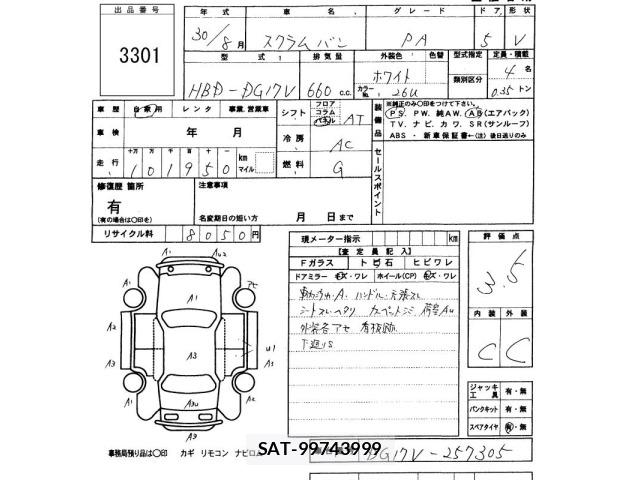 出品番号
3301
年式 車名 グレード ドア 形状
30/8月 スクラムバン PA 5 V
型式 排気量 外装色 色替 型式指定 定員・積載
HBD-DG17V 660 c.c. ホワイト 類別区分 4名
カラーNo. 26U 0.35トン
車歴 自家用 レンタ 事業,営業車
車検 年 月
走行 十万 万 千 百 十
101950 km マイル
シフト フロア コラム パネル AT
冷房 AC
燃料 G
装備品 ※純正のみ○印をつけて下さい。
PS. PW. 純AW. AB(エアバック)
TV. ナビ. カワ. SR(サンルーフ)
ABS・新車保証書←(注)後日送りのみ
セールスポイント
修復歴 箇所
有
(有の場合は○印を)
注意事項
名変期日の短い方 月 日まで
リサイクル料 8050円
現メーター指示 km
【査定員記入】
Fガラス トビ石 ヒビワレ
ドアミラー キズ・ワレ ホイール(CP) キズ・ワレ
外装各アセ
下廻りS
評価点
3.5
内装 外装
C C
ジャッキ 工具 有・無
パンクキット 有・無
スペアタイヤ 有・無
A1 A2 A1 A3 A3U A3 A2 A1 A1 U1 A3
事務局預り品は○印 カギ リモコン ナビロム
SAT-99743999
DG17V-257305